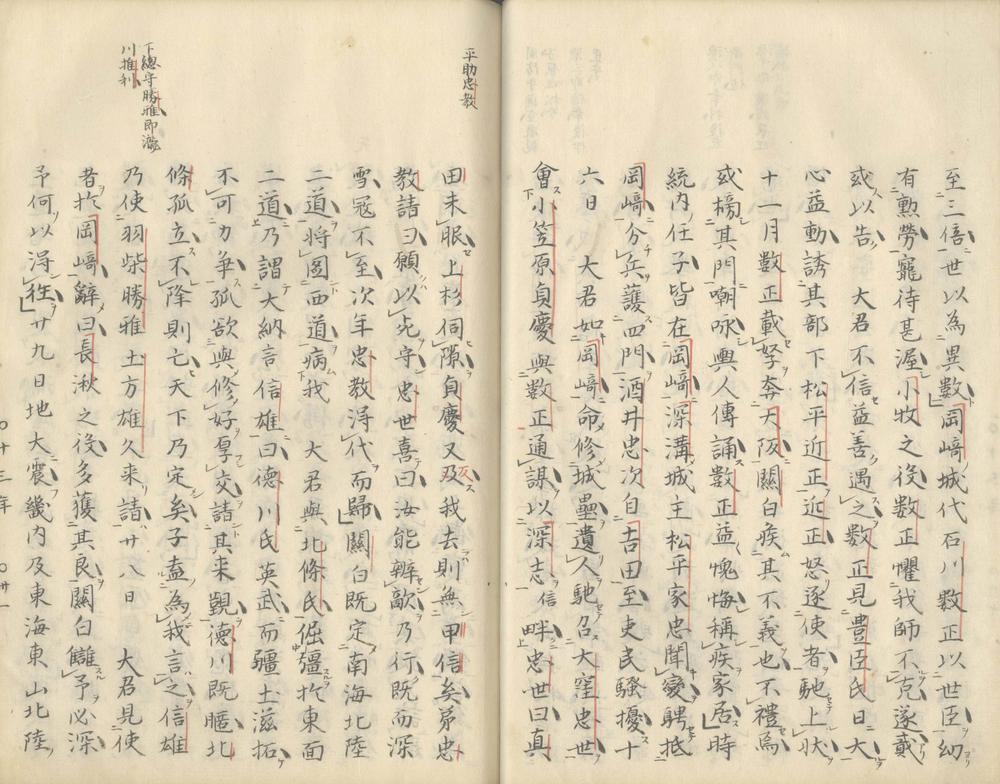 至三倍世以為異數岡﨑城代石川數正以世臣幼
有勲勞寵待甚渥小牧之役數正懼我師不克遂戴
或以告大君不信益善遇之數正見豊臣氏日大
心益動誘其部下松平近正近正怒逐使者馳上状
十一月數正載孥奔大阪關白疾其不義也不禮焉
或榜其門嘲咏輿人傳誦數正益愧悔稱疾家居時
統内任子皆在岡﨑深溝城主松平家忠聞變騁抵
岡﨑分兵護四門酒井忠次自吉田至吏民騒擾十
六日 大君如岡﨑命修城壘遺人馳召大窪忠世
會小笠原貞慶與數正通謀以深志信畔忠世曰真
平助忠教
田未服上杉伺隙貞慶又反我去則無甲信矣弟忠
教請曰願以死守忠世喜曰汝能辦敵乃行既而深
雪冠不至次年忠教得代而歸關白既定南海北陸
二道將圖西道病我 大君與北條氏倔彊於東面
二道乃謂大納言信雄曰德川氏英武而疆土滋拓
不可力争孤欲與修好厚交請其来覲德川既暱北
條孤立不降則亡天下乃定矣子盍為我言之信雄
下總守勝雅即瀧
川雄利
乃使羽柴勝雅土方雄久来請廿八日 大君見使
者於岡﨑辭曰長湫之役多獲其良關白讎予必深
予何以得徃廿九日地大震畿内及東海東山北陸